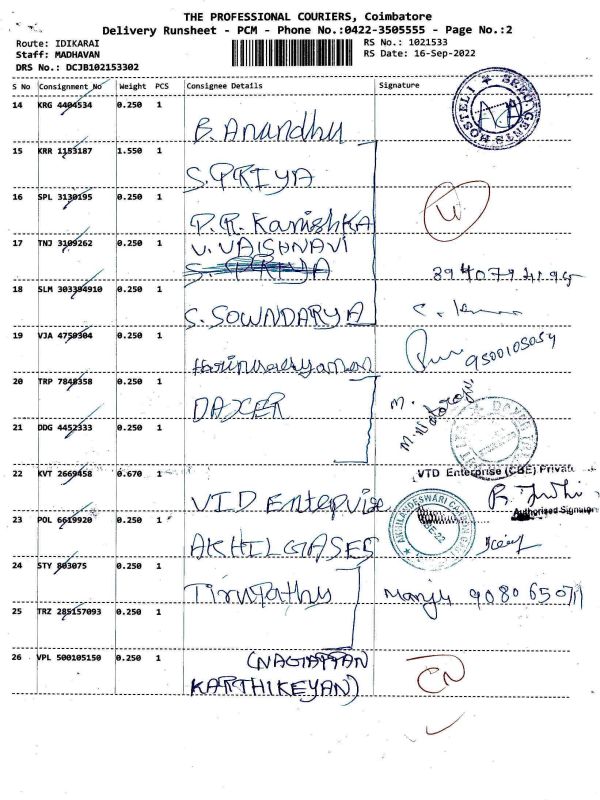 THE PROFESSIONAL COURIERS, Coimbatore
Delivery Runsheet - PCM - Phone No.:0422-3505555 - Page No.:2
Route: IDIKARAI
RS No.: 1021533
Staff: MADHAVAN
RS Date: 16-Sep-2022
DRS No.: DCJB102153302
S No Consignment No Weight PCS Consignee Details Signature
14 KRG 4404534 0.250 1
B. Anandhu
15 KRR 1153187 1.550 1
S. PRIYA
16 SPL 3130195 0.250 1
P. R. Kanishka
17 TNJ 3109262 0.250 1
V. VAISHNAVI
S. PRIYA
18 SLM 303394910 0.250 1
S. SOWNDARYA
19 VJA 4759304 0.250 1
9500105054
20 TRP 7848358 0.250 1
DAXER
M.
21 DDG 4452333 0.250 1
22 KVT 2669458 0.670 1
VTD Enterprise (CBE) Private
VTD Enterprise
Authorised Signatory
23 POL 6619920 0.250 1
AKHIL GASES
24 STY 803075 0.250 1
Tirupathy
Manju
25 TRZ 285157093 0.250 1
26 VPL 500105150 0.250 1
(NAGAPPAN
KARTHIKEYAN)